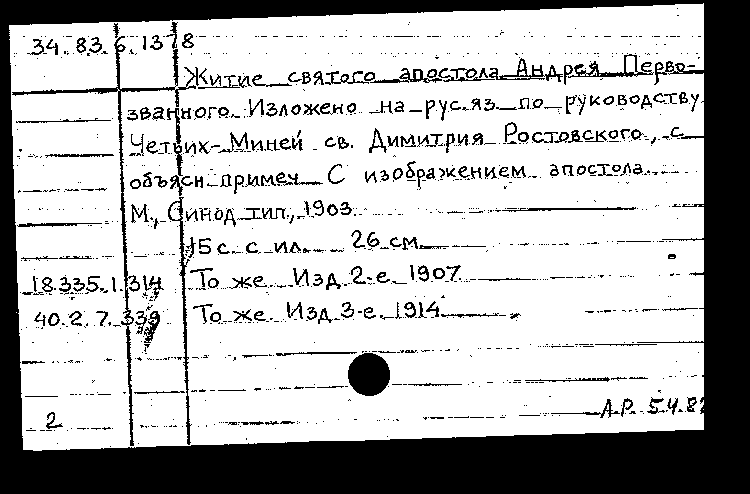 34.83.6.1378
Житие святого апостола Андрея Перво-
званного. Изложено на рус.яз. по руководству
Четьих-Миней св. Димитрия Ростовского, с
объясн. примеч. С изображением апостола.
М., Синод. тип., 1903.
15 с. с ил. 26 см.
18.335.1.314 То же. Изд. 2-е. 1907.
40.2.7.339 То же. Изд. 3-е. 1914.
2 А.Р.